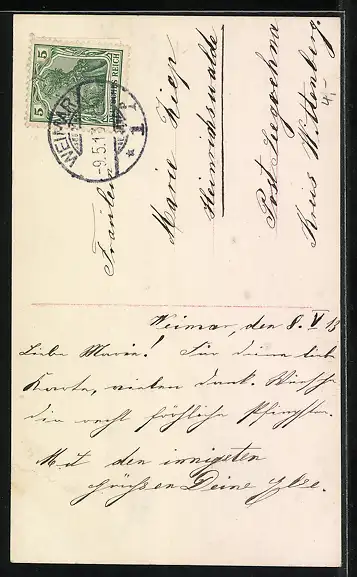 5 5
DEUTSCHES REICH
WEIMAR
-9.5.13
1
Fräulein
Marie Ziep
Heinrichswalde
Post Segrehna
Kreis Wittenberg.
4,-
Weimar, den 8. V 13
Liebe Marie! Für deine lieb
Karte, vielen Dank. Wünsche
dir recht fröhliche Pfingsten.
Mit den innigsten
Grüssen Deine Else.